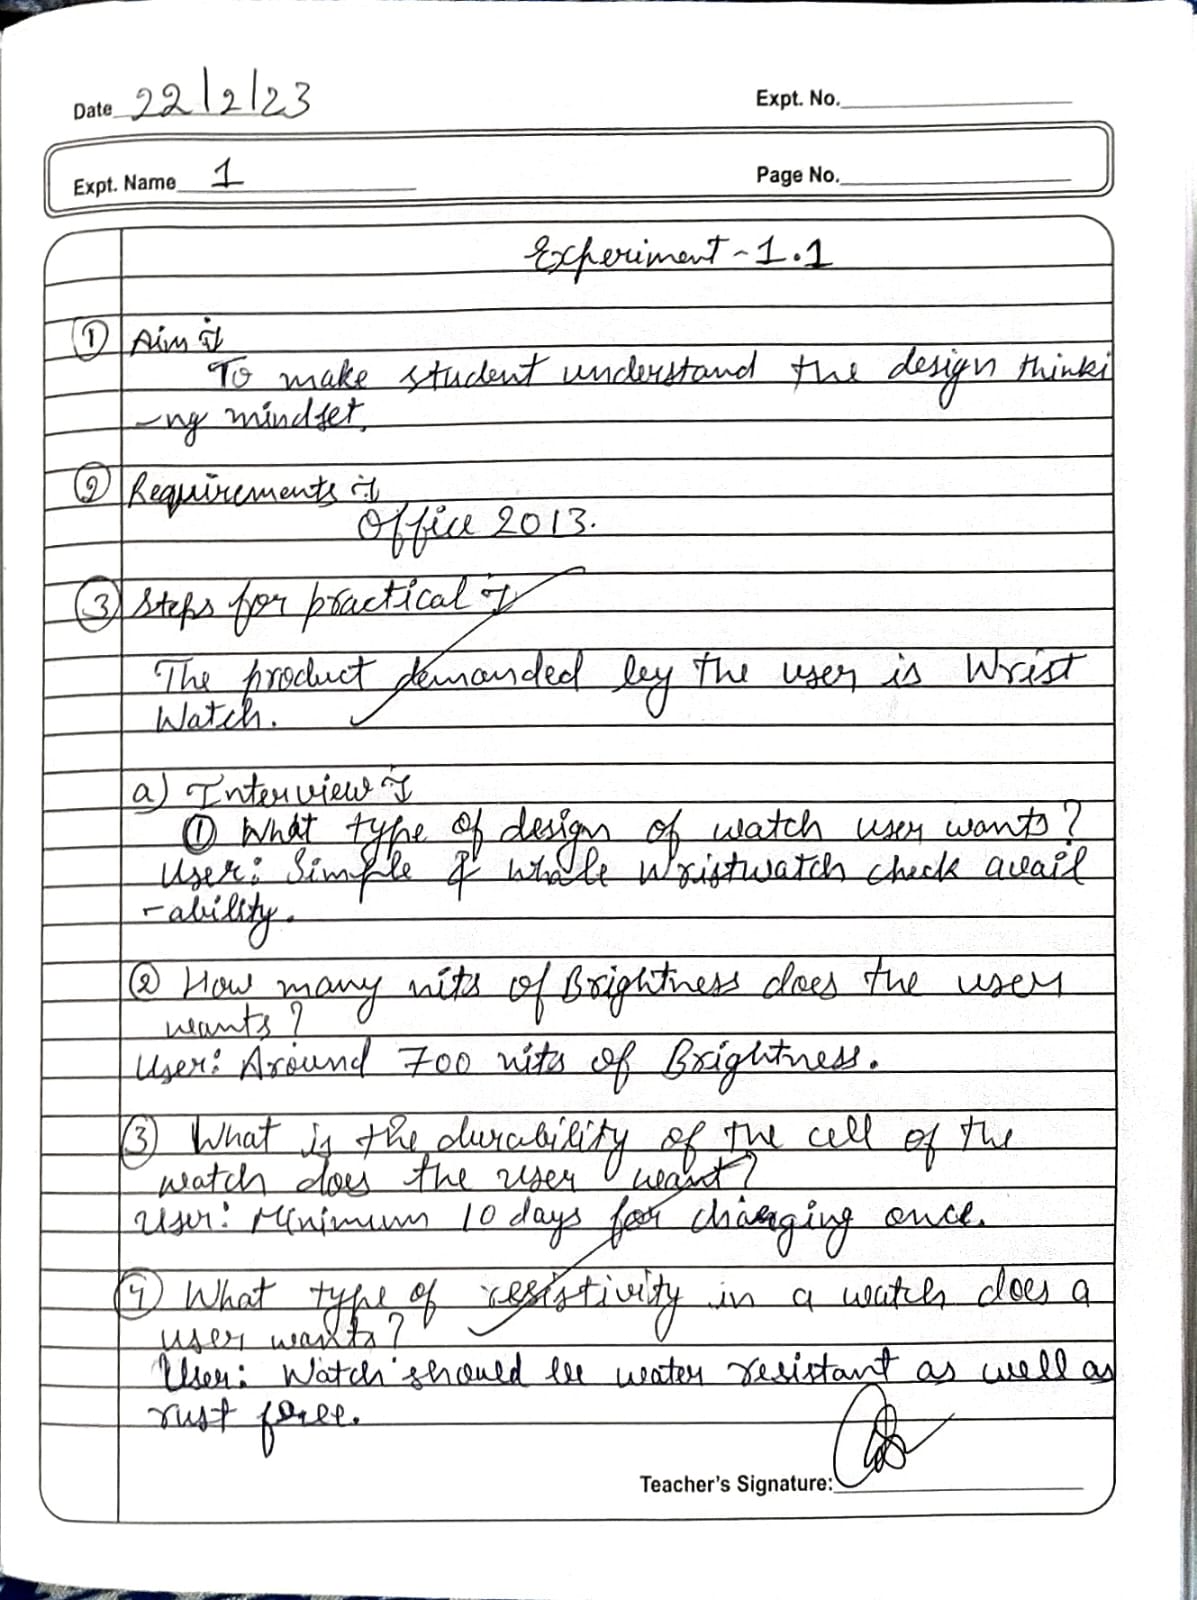 Date 22/2/23 Expt. No.
Expt. Name 1 Page No.
Experiment-1.1
① Aim :-
To make student understand the design thinki
-ng mindset.
② Requirements :-
Office 2013.
③ Steps for practical :-
The product demanded by the user is Wrist
Watch.
a) Interview :-
① What type of design of watch user wants?
User: Simple & whole Wristwatch check avail
-ability.
② How many nits of Brightness does the user
wants?
User: Around 700 nits of Brightness.
③ What is the durability of the cell of the
watch does the user want?
User: Minimum 10 days for charging once.
④ What type of resistivity in a watch does a
user wants?
User: Watch should be water resistant as well as
rust free.
Teacher's Signature: